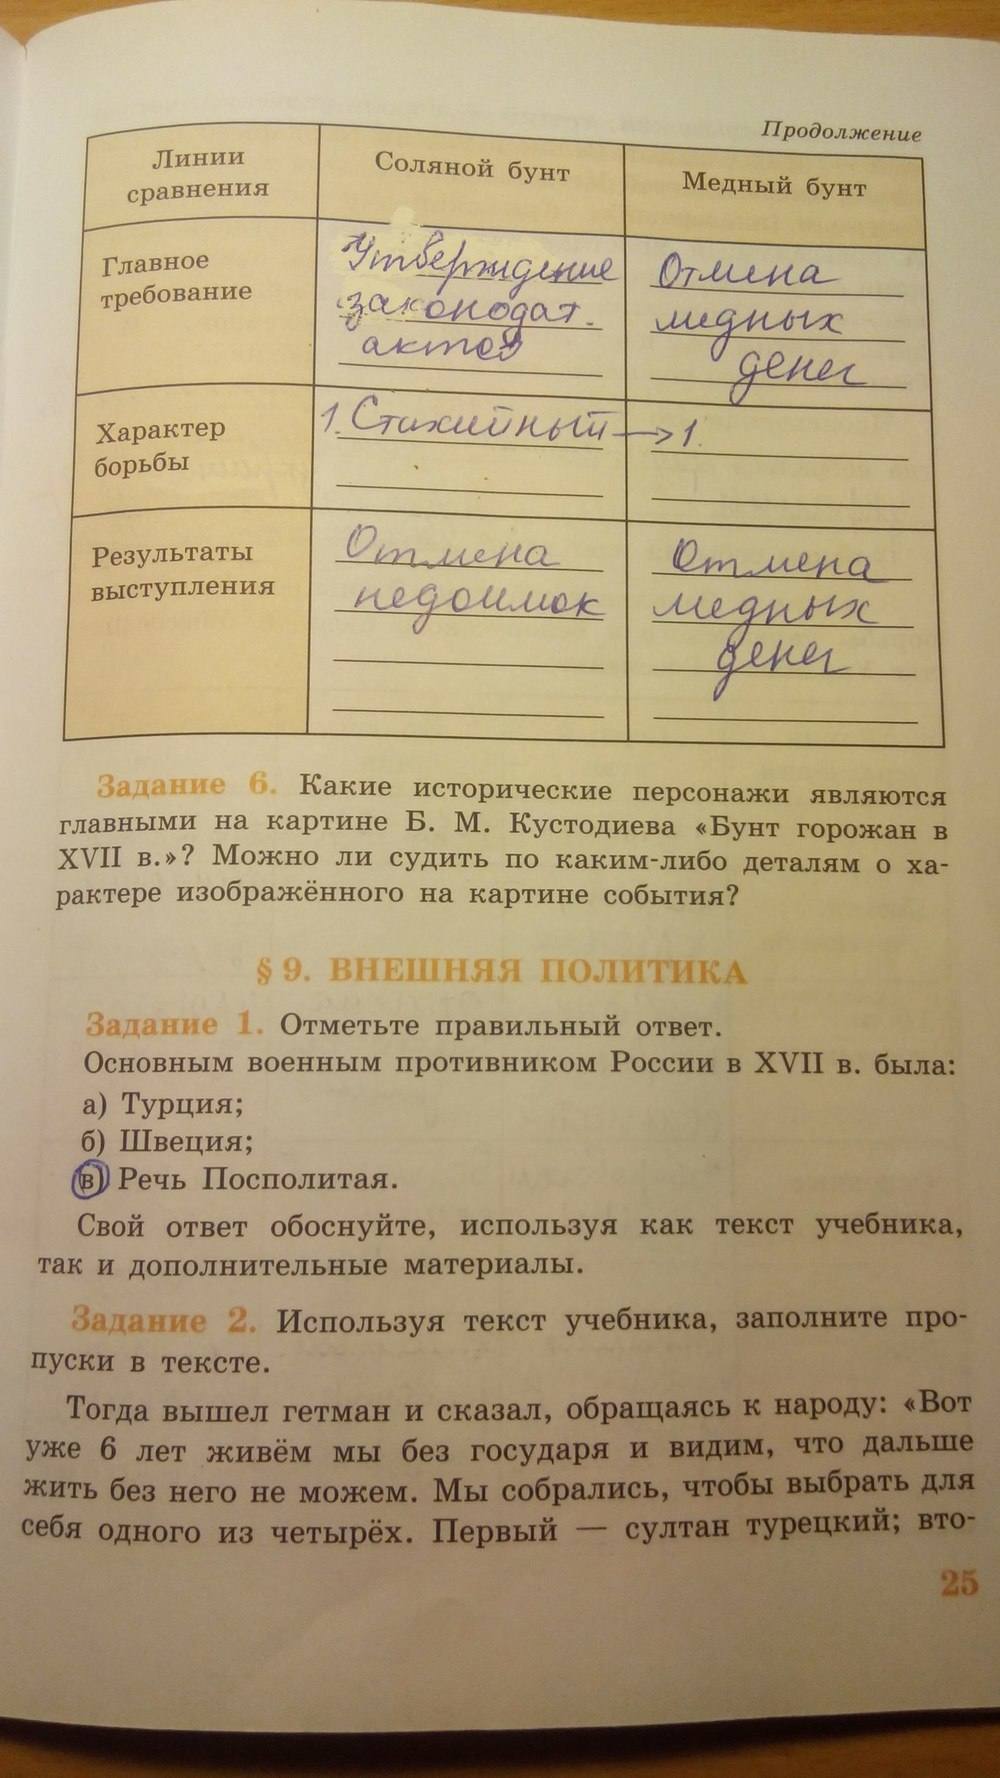 Продолжение
Линии
сравнения
Соляной бунт
Медный бунт
Главное
требование
Утверждение
законодат.
актов
Отмена
медных
денег
Характер
борьбы
1. Стихийный → 1.
Результаты
выступления
Отмена
недоимок
Отмена
медных
денег
Задание 6. Какие исторические персонажи являются
главными на картине Б. М. Кустодиева «Бунт горожан в
XVII в.»? Можно ли судить по каким-либо деталям о ха-
рактере изображённого на картине события?
§ 9. ВНЕШНЯЯ ПОЛИТИКА
Задание 1. Отметьте правильный ответ.
Основным военным противником России в XVII в. была:
а) Турция;
б) Швеция;
в) Речь Посполитая.
Свой ответ обоснуйте, используя как текст учебника,
так и дополнительные материалы.
Задание 2. Используя текст учебника, заполните про-
пуски в тексте.
Тогда вышел гетман и сказал, обращаясь к народу: «Вот
уже 6 лет живём мы без государя и видим, что дальше
жить без него не можем. Мы собрались, чтобы выбрать для
себя одного из четырёх. Первый — султан турецкий; вто-
25